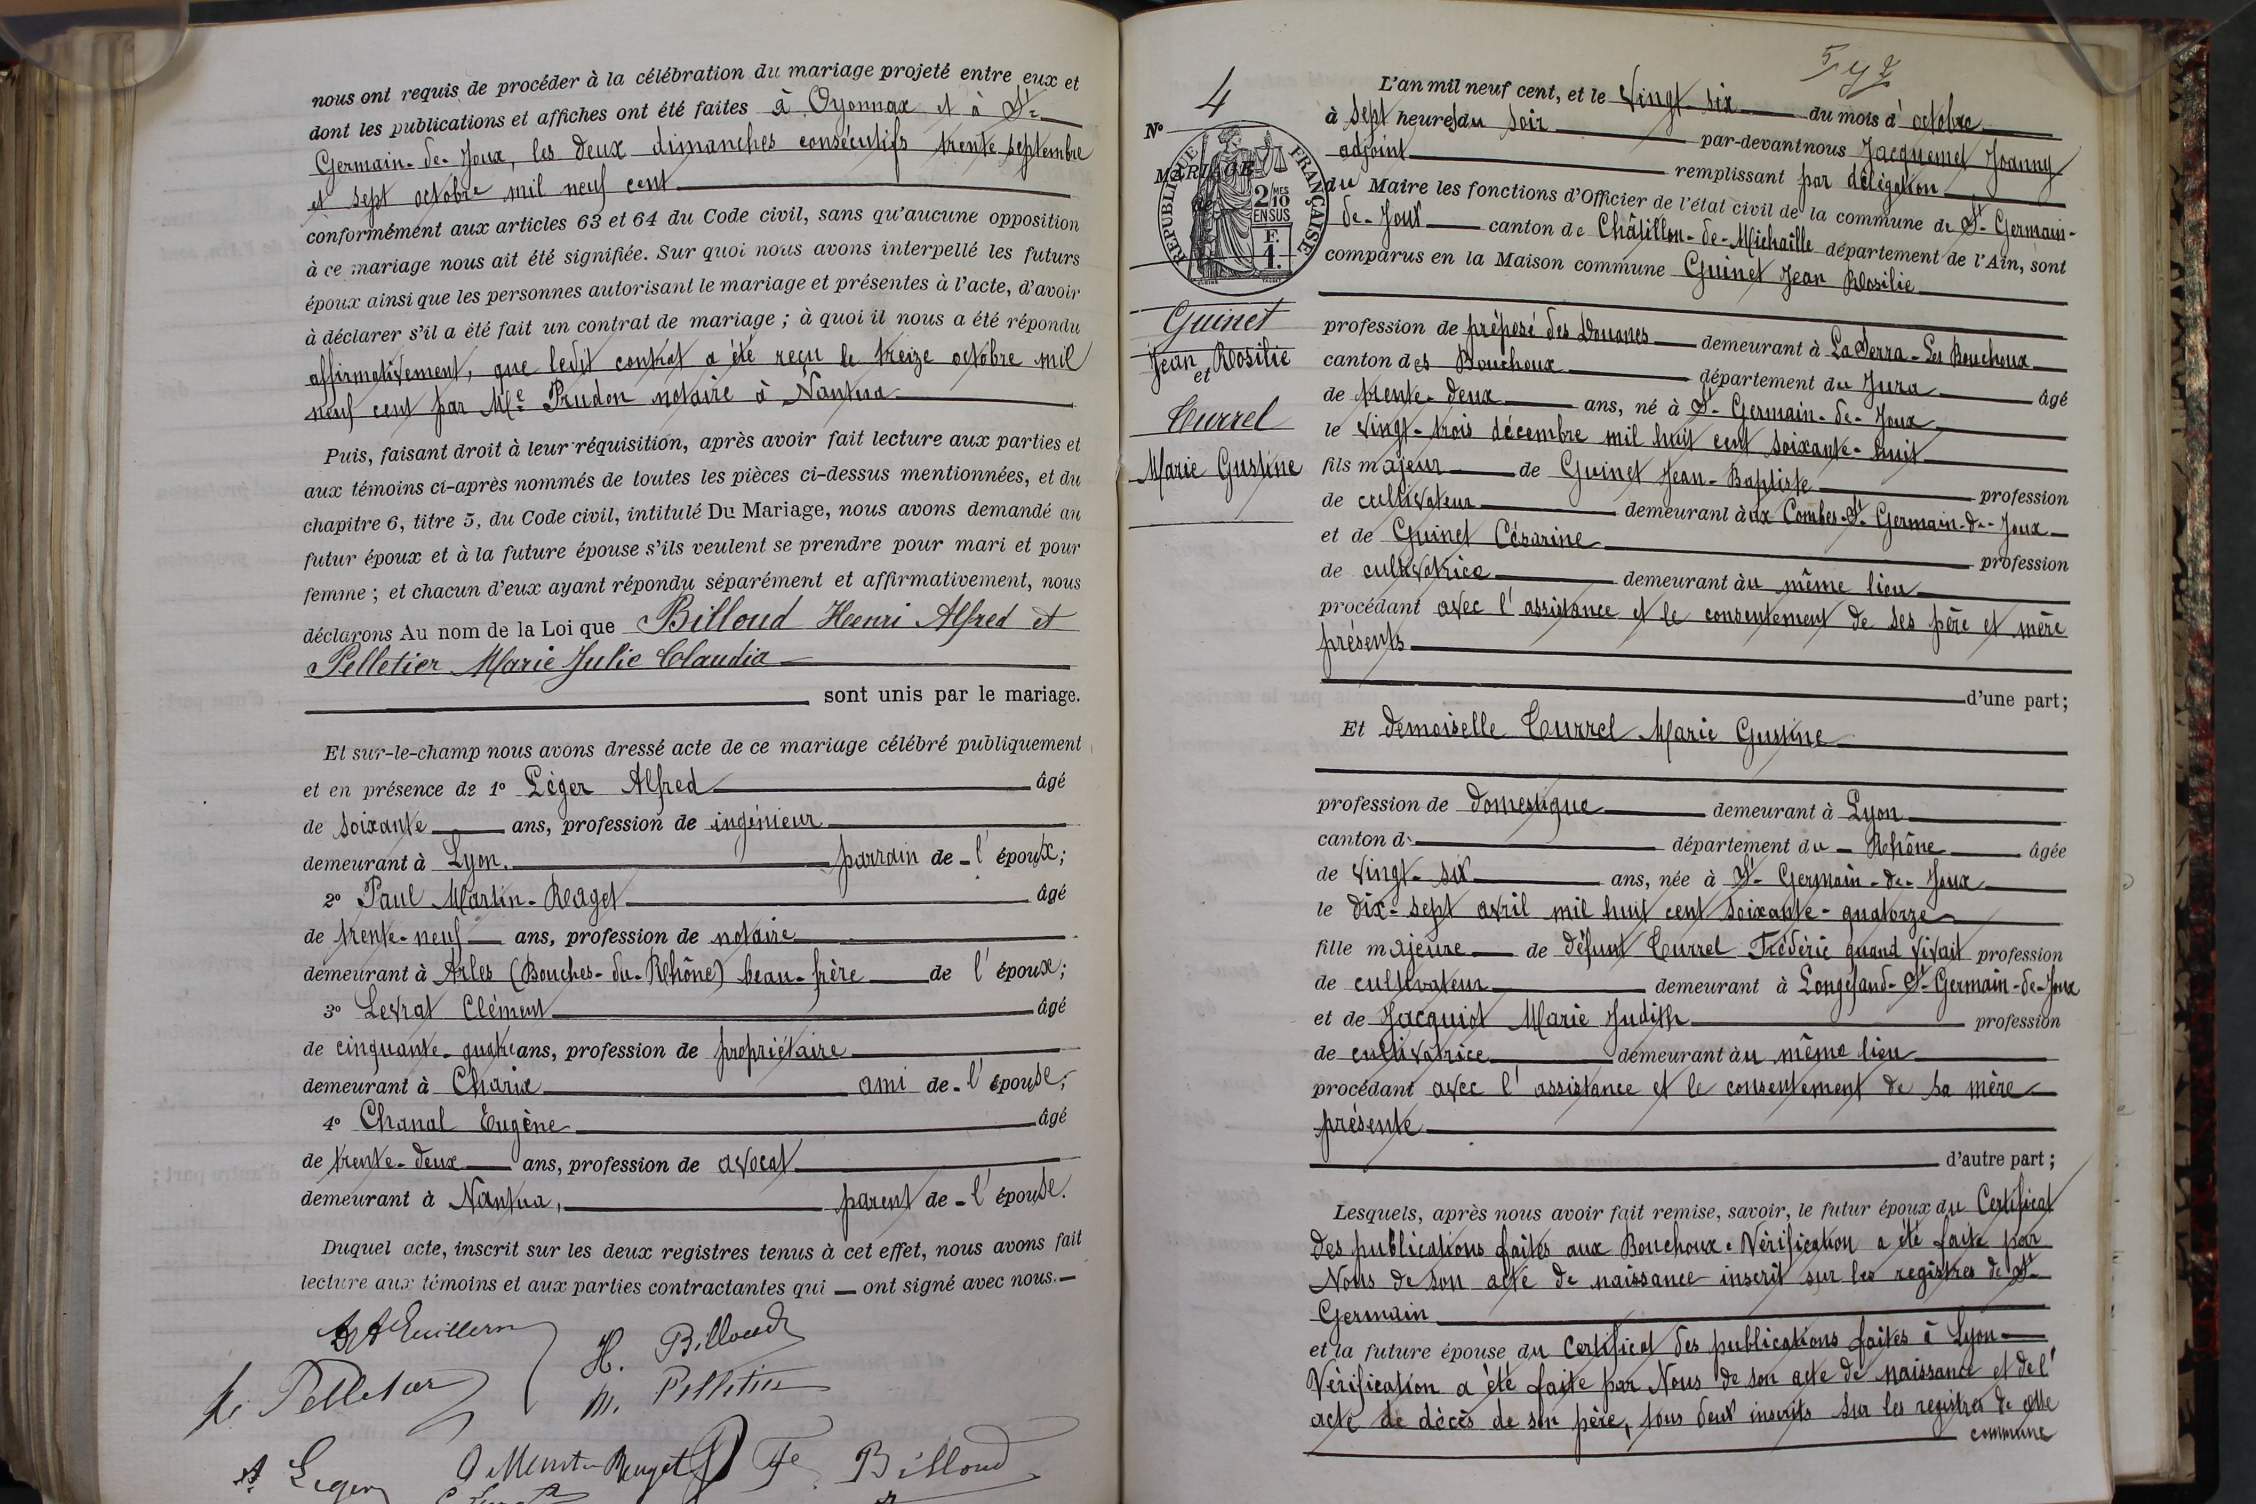 nous ont requis de procéder à la célébration du mariage projeté entre eux et
dont les publications et affiches ont été faites à Oyonnax et à St-
Germain-de-Joux, les deux dimanches consécutifs trente septembre
et sept octobre mil neuf cent
conformément aux articles 63 et 64 du Code civil, sans qu'aucune opposition
à ce mariage nous ait été signifiée. Sur quoi nous avons interpellé les futurs
époux ainsi que les personnes autorisant le mariage et présentes à l'acte, d'avoir
à déclarer s'il a été fait un contrat de mariage ; à quoi il nous a été répondu
affirmativement, que ledit contrat a été reçu le treize octobre mil
neuf cent par Me Prudon notaire à Nantua
Puis, faisant droit à leur réquisition, après avoir fait lecture aux parties et
aux témoins ci-après nommés de toutes les pièces ci-dessus mentionnées, et du
chapitre 6, titre 5, du Code civil, intitulé Du Mariage, nous avons demandé au
futur époux et à la future épouse s'ils veulent se prendre pour mari et pour
femme ; et chacun d'eux ayant répondu séparément et affirmativement, nous
déclarons Au nom de la Loi que Billoud Henri Alfred et
Pelletier Marie Julie Claudia
sont unis par le mariage.
Et sur-le-champ nous avons dressé acte de ce mariage célébré publiquement
et en présence de 1° Léger Alfred âgé
de soixante ans, profession de ingénieur
demeurant à Lyon. parrain de l'époux;
2° Paul Martin-Reaget âgé
de trente-neuf ans, profession de notaire
demeurant à Arles (Bouches-du-Rhône) beau-frère de l'époux;
3° Levrat Clément âgé
de cinquante-quatre ans, profession de propriétaire
demeurant à Charix ami de l'épouse;
4° Chanal Eugène âgé
de trente-deux ans, profession de avocat
demeurant à Nantua, parent de l'épouse.
Duquel acte, inscrit sur les deux registres tenus à cet effet, nous avons fait
lecture aux témoins et aux parties contractantes qui — ont signé avec nous.—
H. Billoud
Pelletier
M. Pelletier
A. Leger
Billoud
4
N°
MARIAGE
RÉPUBLIQUE FRANÇAISE
2/10 MES
EN SUS
F.
1.
Guinet
Jean Rosilie
et
Turrel
Marie Gustine
L'an mil neuf cent, et le vingt-six du mois d'octobre
à sept heures du soir par-devant nous Jacquemet Joanny
adjoint remplissant par délégation
du Maire les fonctions d'Officier de l'état civil de la commune de St-Germain-
de-Joux canton de Châtillon-de-Michaille département de l'Ain, sont
comparus en la Maison commune Guinet Jean Rosilie
profession de préposé des Douanes demeurant à La Serra-Les Bouchoux
canton des Bouchoux département du Jura âgé
de trente-deux ans, né à St-Germain-de-Joux
le vingt-trois décembre mil huit cent soixante-huit
fils majeur de Guinet Jean-Baptiste profession
de cultivateur demeurant aux Combes-St-Germain-de-Joux
et de Guinet Césarine profession
de cultivatrice demeurant au même lieu
procédant avec l'assistance et le consentement de ses père et mère
présents
d'une part;
Et demoiselle Turrel Marie Gustine
profession de domestique demeurant à Lyon
canton d département du Rhône âgée
de vingt-six ans, née à St-Germain-de-Joux
le dix-sept avril mil huit cent soixante-quatorze
fille majeure de défunt Turrel Frédéric quand vivait profession
de cultivateur demeurant à Longefand-St-Germain-de-Joux
et de Jacquiot Marie Judith profession
de cultivatrice demeurant au même lieu
procédant avec l'assistance et le consentement de sa mère
présente
d'autre part;
Lesquels, après nous avoir fait remise, savoir, le futur époux du Certificat
des publications faites aux Bouchoux. Vérification a été faite par
Nous de son acte de naissance inscrit sur les registres de St-
Germain
et la future épouse du Certificat des publications faites à Lyon
Vérification a été faite par Nous de son acte de naissance et de l'
acte de décès de son père, tous deux inscrits sur les registres de cette
commune